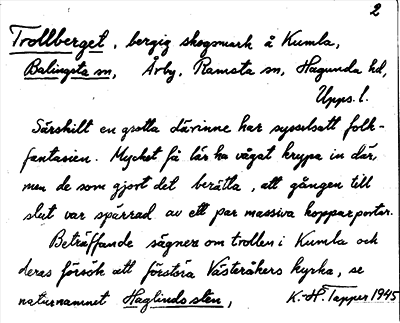 2
Trollberget, bergig skogsmark å Kumla,
Balingsta sn, Årby, Ramsta sn, Hagunda hd,
Upps. l.
Särskilt en grotta därinne har sysselsatt folk-
fantasien. Mycket få lär ha vågat krypa in där,
men de som gjort det berätta, att gången till
slut var spärrad av ett par massiva kopparportar.
Beträffande sägner om trollen i Kumla och
deras försök att förstöra Västeråkers kyrka, se
naturnamnet Haglindssten,
K.-H. Tapper 1945